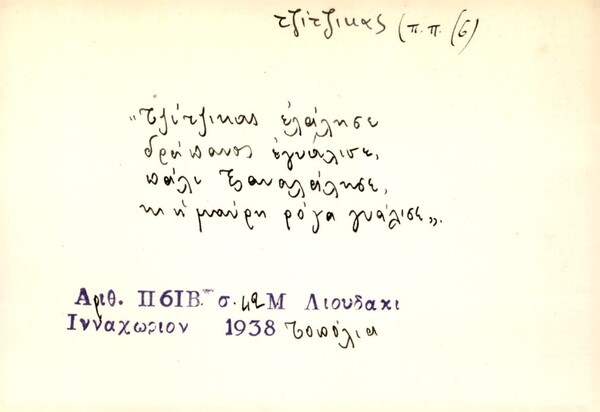 τζίτζικας (π.π. (6)
"Τζίτζικας ἐλάλησε
δράπανος ἐγυάλισε,
πάλι ξαναλάλησε,
κι ἡ μαύρη ρόγα γυάλισε".
Αριθ. Π6ΙΒ. σ. 42 Μ Λιουδακι
Ινναχωριον 1938 Τοπόλια